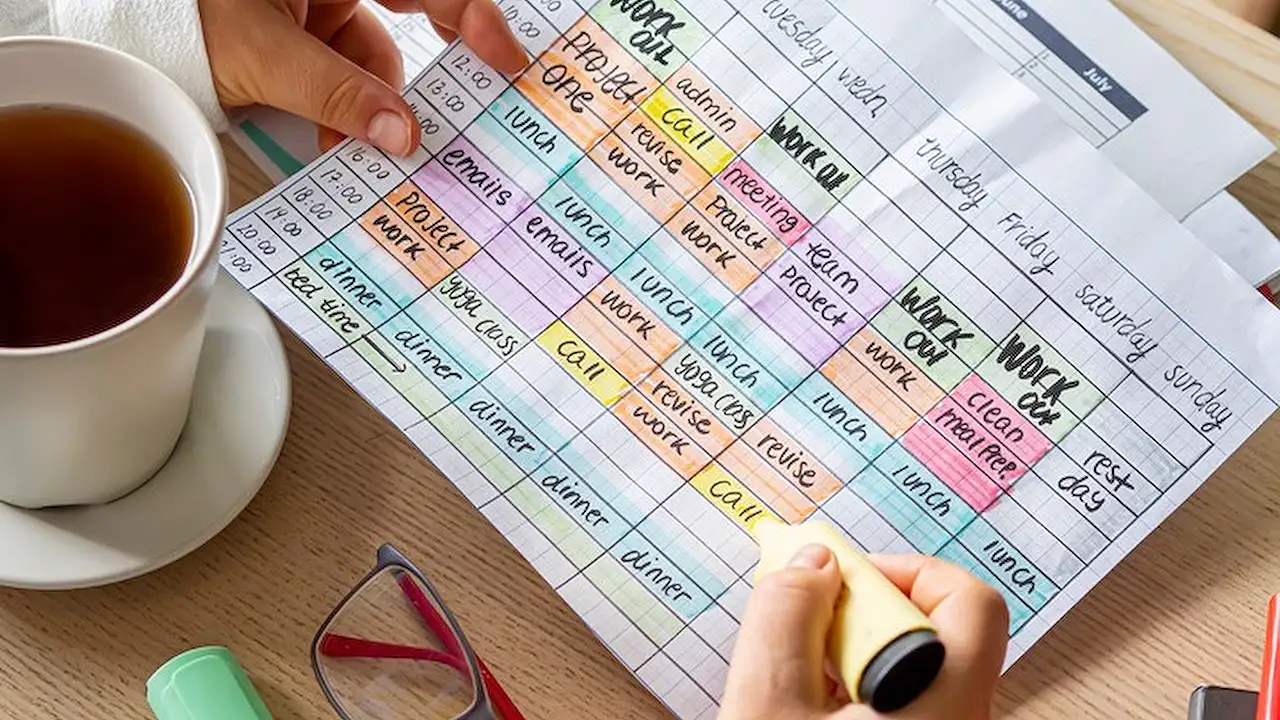 June
July
Tuesday
wedn
thursday
Friday
saturday
sunday
10:00
12:00
13:00
16:00
17:00
18:00
20:00
WORK
OUT
PROJECT
ONE
lunch
emails
PROJECT
WORK
dinner
bed time
admin
call
revise
work
lunch
emails
yoga class
dinner
WORK OUT
meeting
Project
work
lunch
work
call
dinner
team
project
lunch
yoga class
revise
work
dinner
WORK
OUT
work
lunch
revise
call
dinner
WORK
OUT
clean
mealPrep.
lunch
rest
day
lunch